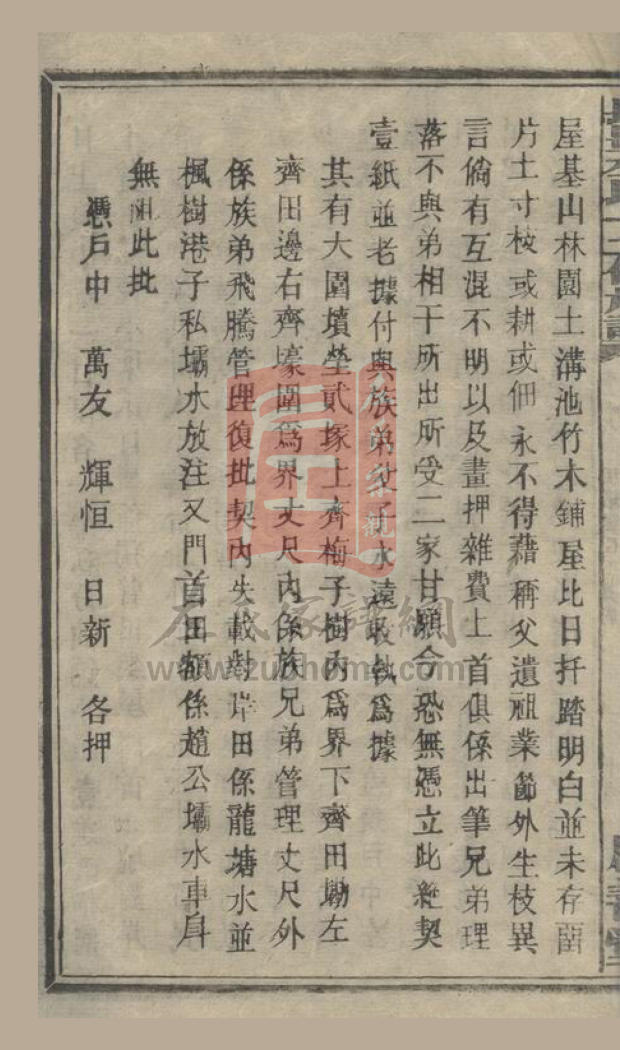 屋基山林園土溝池竹木鋪屋比日扦踏明白並未存留
片土寸枝或耕或佃永不得藉稱父遺祖業節外生枝異
言倘有互混不明以及畫押雜費上首俱係出筆兄弟理
落不與弟相干所出所受二家甘願今恐無憑立此絕契
壹紙並老據付與族弟父子永遠收執爲據
其有大園墳塋貳塚上齊梅子樹內爲界下齊田墈左
齊田邊右齊壕圍爲界丈尺內係族兄弟管理丈尺外
係族弟飛騰管理復批契內失載對岸田係龍塘水並
楓樹港子私壩水放注又門首田額係趙公壩水車戽
無阻此批
憑戶中 萬友 輝恒 日新 各押
左氏家譜網
www.zuohome.com